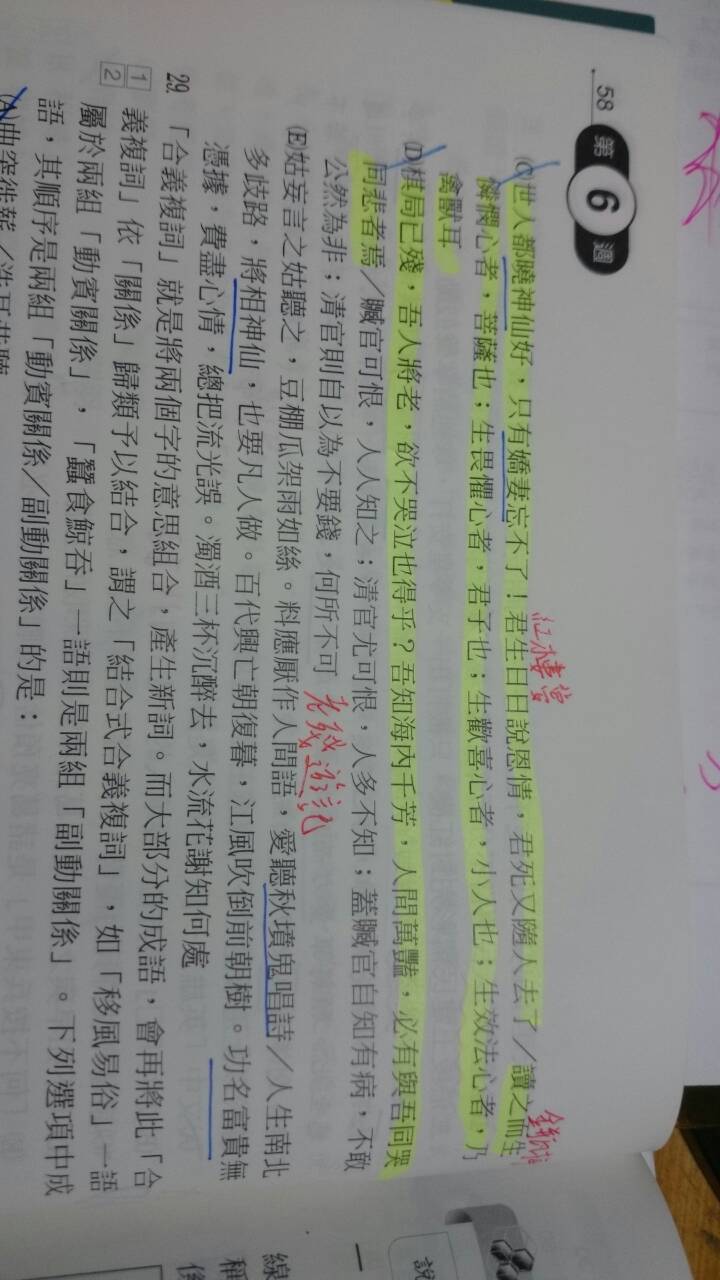 58 第6週
(C)世人都曉神仙好，只有嬌妻忘不了！君生日日說恩情，君死又隨人去了／讀之而生
紅樓夢
憐憫心者，菩薩也；生畏懼心者，君子也；生歡喜心者，小人也；生效法心者，乃
禽獸耳
(D)棋局已殘，吾人將老，欲不哭泣也得乎？吾知海內千芳，人間萬豔，必有與吾同哭
同悲者焉／贓官可恨，人人知之；清官尤可恨，人多不知；蓋贓官自知有病，不敢
公然為非；清官則自以為不要錢，何所不可
老殘遊記
(E)姑妄言之姑聽之，豆棚瓜架雨如絲。料應厭作人間語，愛聽秋墳鬼唱詩／人生南北
多歧路，將相神仙，也要凡人做。百代興亡朝復暮，江風吹倒前朝樹。功名富貴無
憑據，費盡心情，總把流光誤。濁酒三杯沉醉去，水流花謝知何處
29.「合義複詞」就是將兩個字的意思組合，產生新詞。而大部分的成語，會再將此「合
1 義複詞」依「關係」歸類予以結合，謂之「結合式合義複詞」，如「移風易俗」一語
2 屬於兩組「動賓關係」，「蠶食鯨吞」一語則是兩組「副動關係」。下列選項中成
語，其順序是兩組「動賓關係／副動關係」的是：
(A)曲突徙薪／洗耳恭聽
說
一
線
種
係